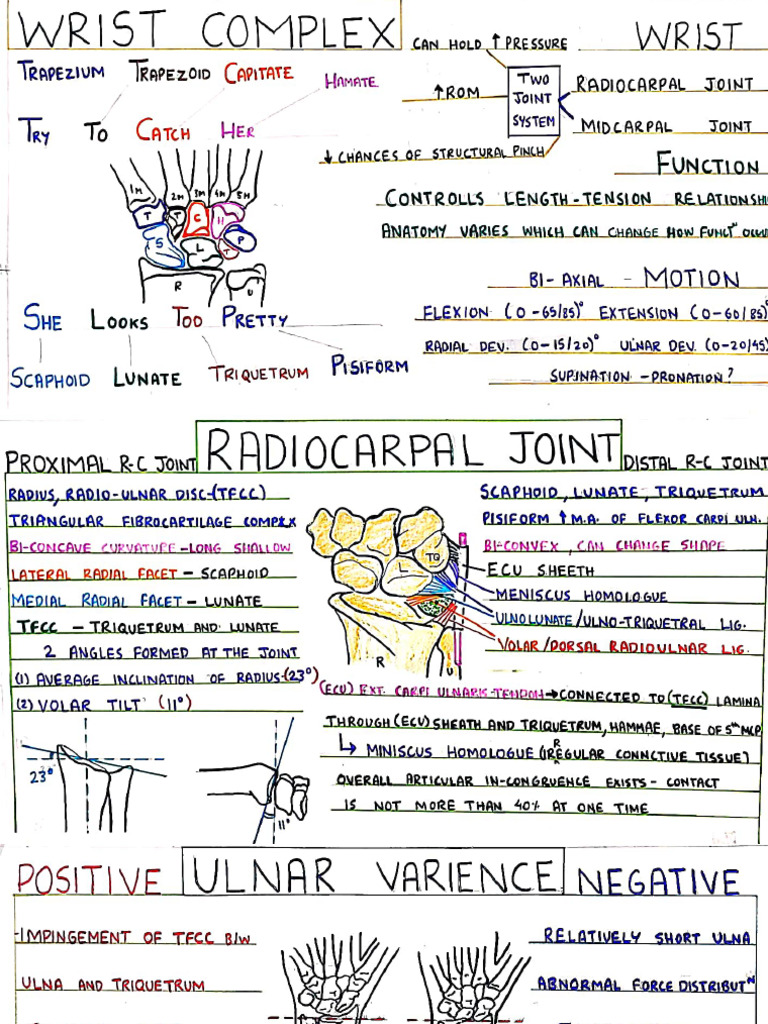 WRIST COMPLEX
CAN HOLD ↑ PRESSURE
WRIST
TRAPEZIUM TRAPEZOID CAPITATE HAMATE
TRY TO CATCH HER
↑ROM
TWO JOINT SYSTEM
RADIOCARPAL JOINT
MIDCARPAL JOINT
↓ CHANCES OF STRUCTURAL PINCH
FUNCTION
CONTROLLS LENGTH-TENSION RELATIONSHI
ANATOMY VARIES WHICH CAN CHANGE HOW FUNCTⁿ OCCU
1M 2M 3M 4M 5M
T T C H
S L T P
R U
BI-AXIAL - MOTION
FLEXION (0-65/85)° EXTENSION (0-60/85)°
RADIAL DEV. (0-15/20)° ULNAR DEV. (0-20/45)
SUPINATION -PRONATION?
SHE LOOKS TOO PRETTY
SCAPHOID LUNATE TRIQUETRUM PISIFORM
PROXIMAL R-C JOINT
RADIOCARPAL JOINT
DISTAL R-C JOINT
RADIUS, RADIO-ULNAR DISC-(TFCC)
TRIANGULAR FIBROCARTILAGE COMPLX
BI-CONCAVE CURVATURE-LONG SHALLOW
LATERAL RADIAL FACET - SCAPHOID
MEDIAL RADIAL FACET - LUNATE
TFCC - TRIQUETRUM AND LUNATE
2 ANGLES FORMED AT THE JOINT
(1) AVERAGE INCLINATION OF RADIUS-(23°)
(2) VOLAR TILT (11°)
23°
11°
TQ
L
R
U
SCAPHOID, LUNATE, TRIQUETRUM
PISIFORM ↑ M.A. OF FLEXOR CARPI ULN.
BI-CONVEX, CAN CHANGE SHAPE
ECU SHEETH
MENISCUS HOMOLOGUE
ULNOLUNATE/ULNO-TRIQUETRAL LIG.
VOLAR/DORSAL RADIOULNAR LIG.
(ECU) EXT. CARPI ULNARIS TENDON→CONNECTED TO (TFCC) LAMINA
THROUGH (ECU) SHEATH AND TRIQUETRUM, HAMMAE, BASE OF 5th MCP
↳ MINISCUS HOMOLOGUE (IRREGULAR CONNCTIVE TISSUE)
OVERALL ARTICULAR IN-CONGRUENCE EXISTS - CONTACT
IS NOT MORE THAN 40% AT ONE TIME
POSITIVE
ULNAR VARIENCE
NEGATIVE
-IMPINGEMENT OF TFCC B/W
ULNA AND TRIQUETRUM
RELATIVELY SHORT ULNA
ABNORMAL FORCE DISTRIBUTⁿ